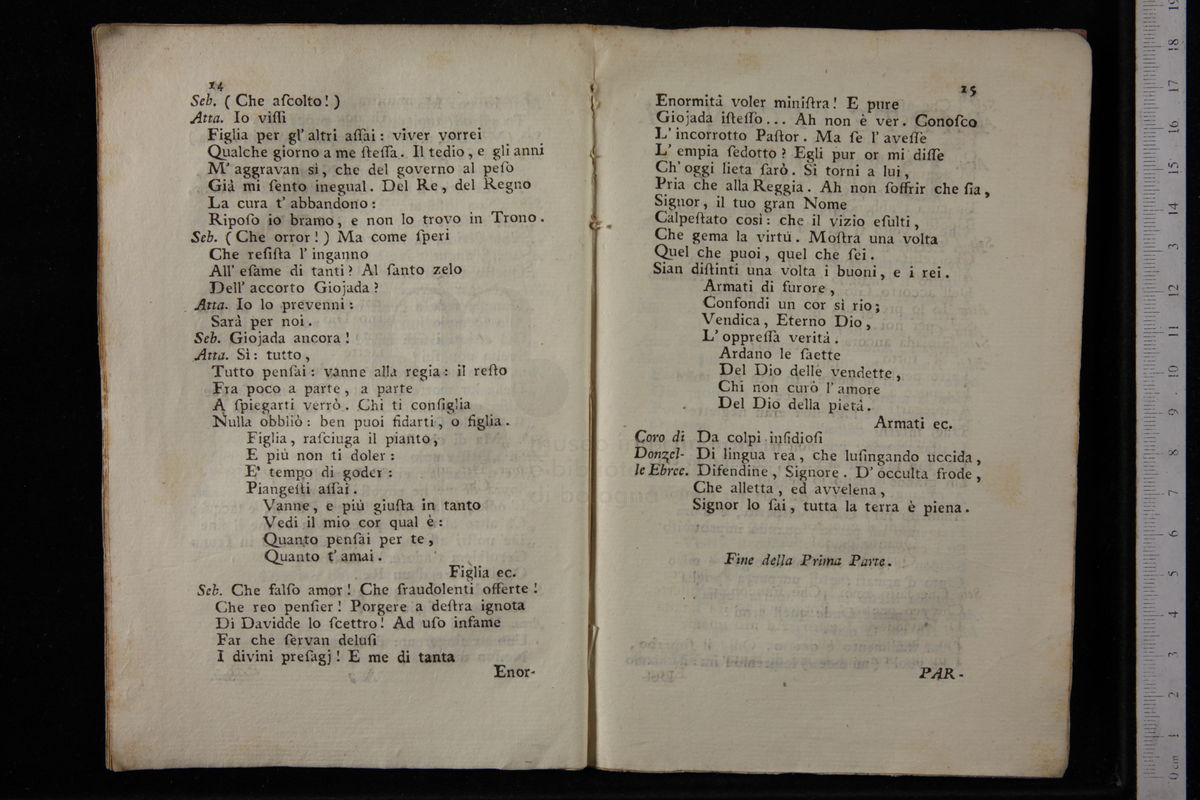 14
Seb. ( Che aſcolto! )
Atta. Io viſſi
Figlia per gl' altri aſſai : viver vorrei
Qualche giorno a me ſteſſa. Il tedio, e gli anni
M' aggravan sì, che del governo al peſo
Già mi ſento inegual. Del Re, del Regno
La cura t' abbandono :
Ripoſo io bramo, e non lo trovo in Trono.
Seb. ( Che orror! ) Ma come ſperi
Che reſiſta l' inganno
All' eſame di tanti? Al ſanto zelo
Dell' accorto Giojada?
Atta. Io lo prevenni :
Sarà per noi.
Seb. Giojada ancora!
Atta. Sì : tutto,
Tutto penſai : vanne alla regia : il reſto
Fra poco a parte, a parte
A ſpiegarti verrò. Chi ti conſiglia
Nulla obbliò : ben puoi fidarti, o figlia.
Figlia, raſciuga il pianto,
E più non ti doler :
E' tempo di goder :
Piangeſti aſſai.
Vanne, e più giuſta in tanto
Vedi il mio cor qual è :
Quanto penſai per te,
Quanto t' amai.
Figlia ec.
Seb. Che falſo amor! Che fraudolenti offerte!
Che reo penſier! Porgere a deſtra ignota
Di Davidde lo ſcettro! Ad uſo infame
Far che ſervan deluſi
I divini preſagj! E me di tanta
Enor-
15
Enormità voler miniſtra! E pure
Giojada iſteſſo... Ah non è ver. Conoſco
L' incorrotto Paſtor. Ma ſe l' aveſſe
L' empia ſedotto? Egli pur or mi diſſe
Ch' oggi lieta ſarò. Si torni a lui,
Pria che alla Reggia. Ah non ſoffrir che ſia,
Signor, il tuo gran Nome
Calpeſtato così : che il vizio eſulti,
Che gema la virtù. Moſtra una volta
Quel che puoi, quel che ſei.
Sian diſtinti una volta i buoni, e i rei.
Armati di furore,
Confondi un cor sì rio;
Vendica, Eterno Dio,
L' oppreſſa verità.
Ardano le ſaette
Del Dio delle vendette,
Chi non curò l' amore
Del Dio della pietà.
Armati ec.
Coro di Da colpi inſidioſi
Donzel- Di lingua rea, che luſingando uccida,
le Ebree. Difendine, Signore. D' occulta frode,
Che alletta, ed avvelena,
Signor lo ſai, tutta la terra è piena.
Fine della Prima Parte.
PAR-